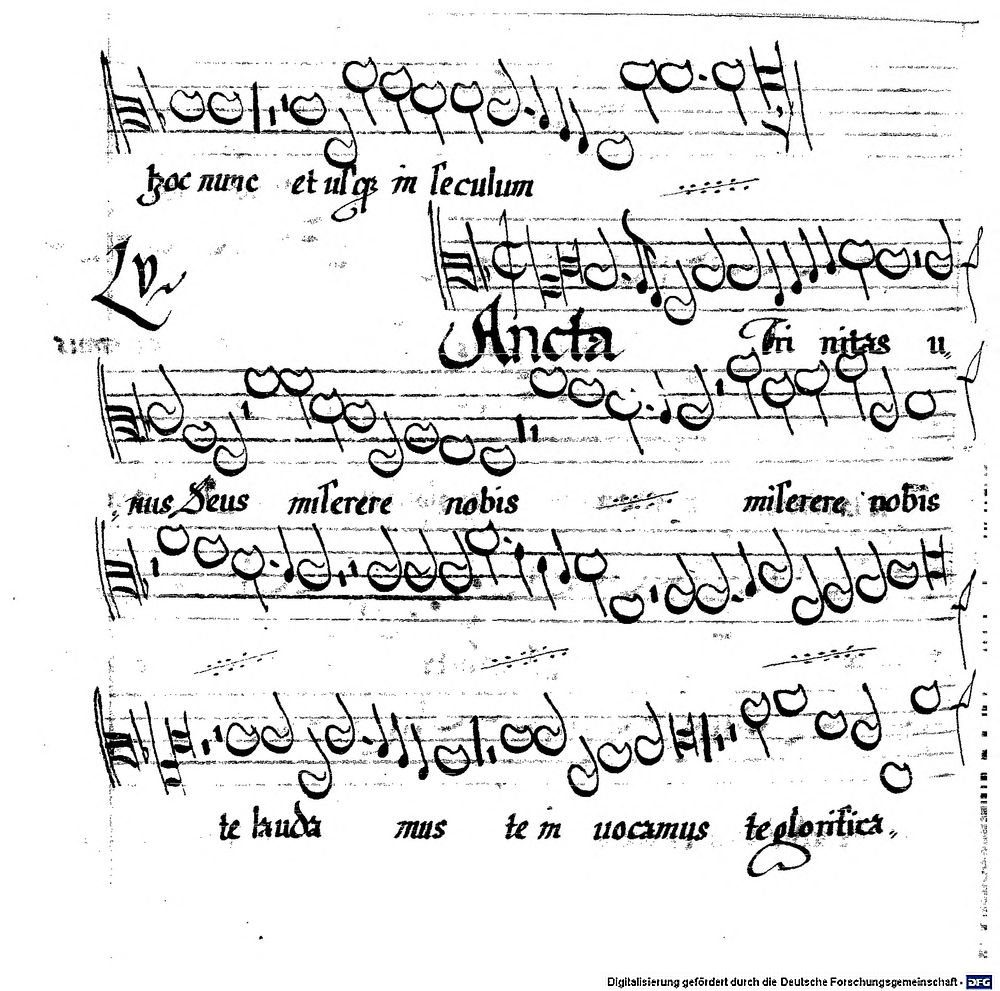 hoc nunc et usqꝫ in seculum
Lv
Ancta Tri nitas u,,
,,nus Deus miserere nobis miserere nobis
te lauda mus te in uocamus te glorifica,,
Digitalisierung gefördert durch die Deutsche Forschungsgemeinschaft - DFG